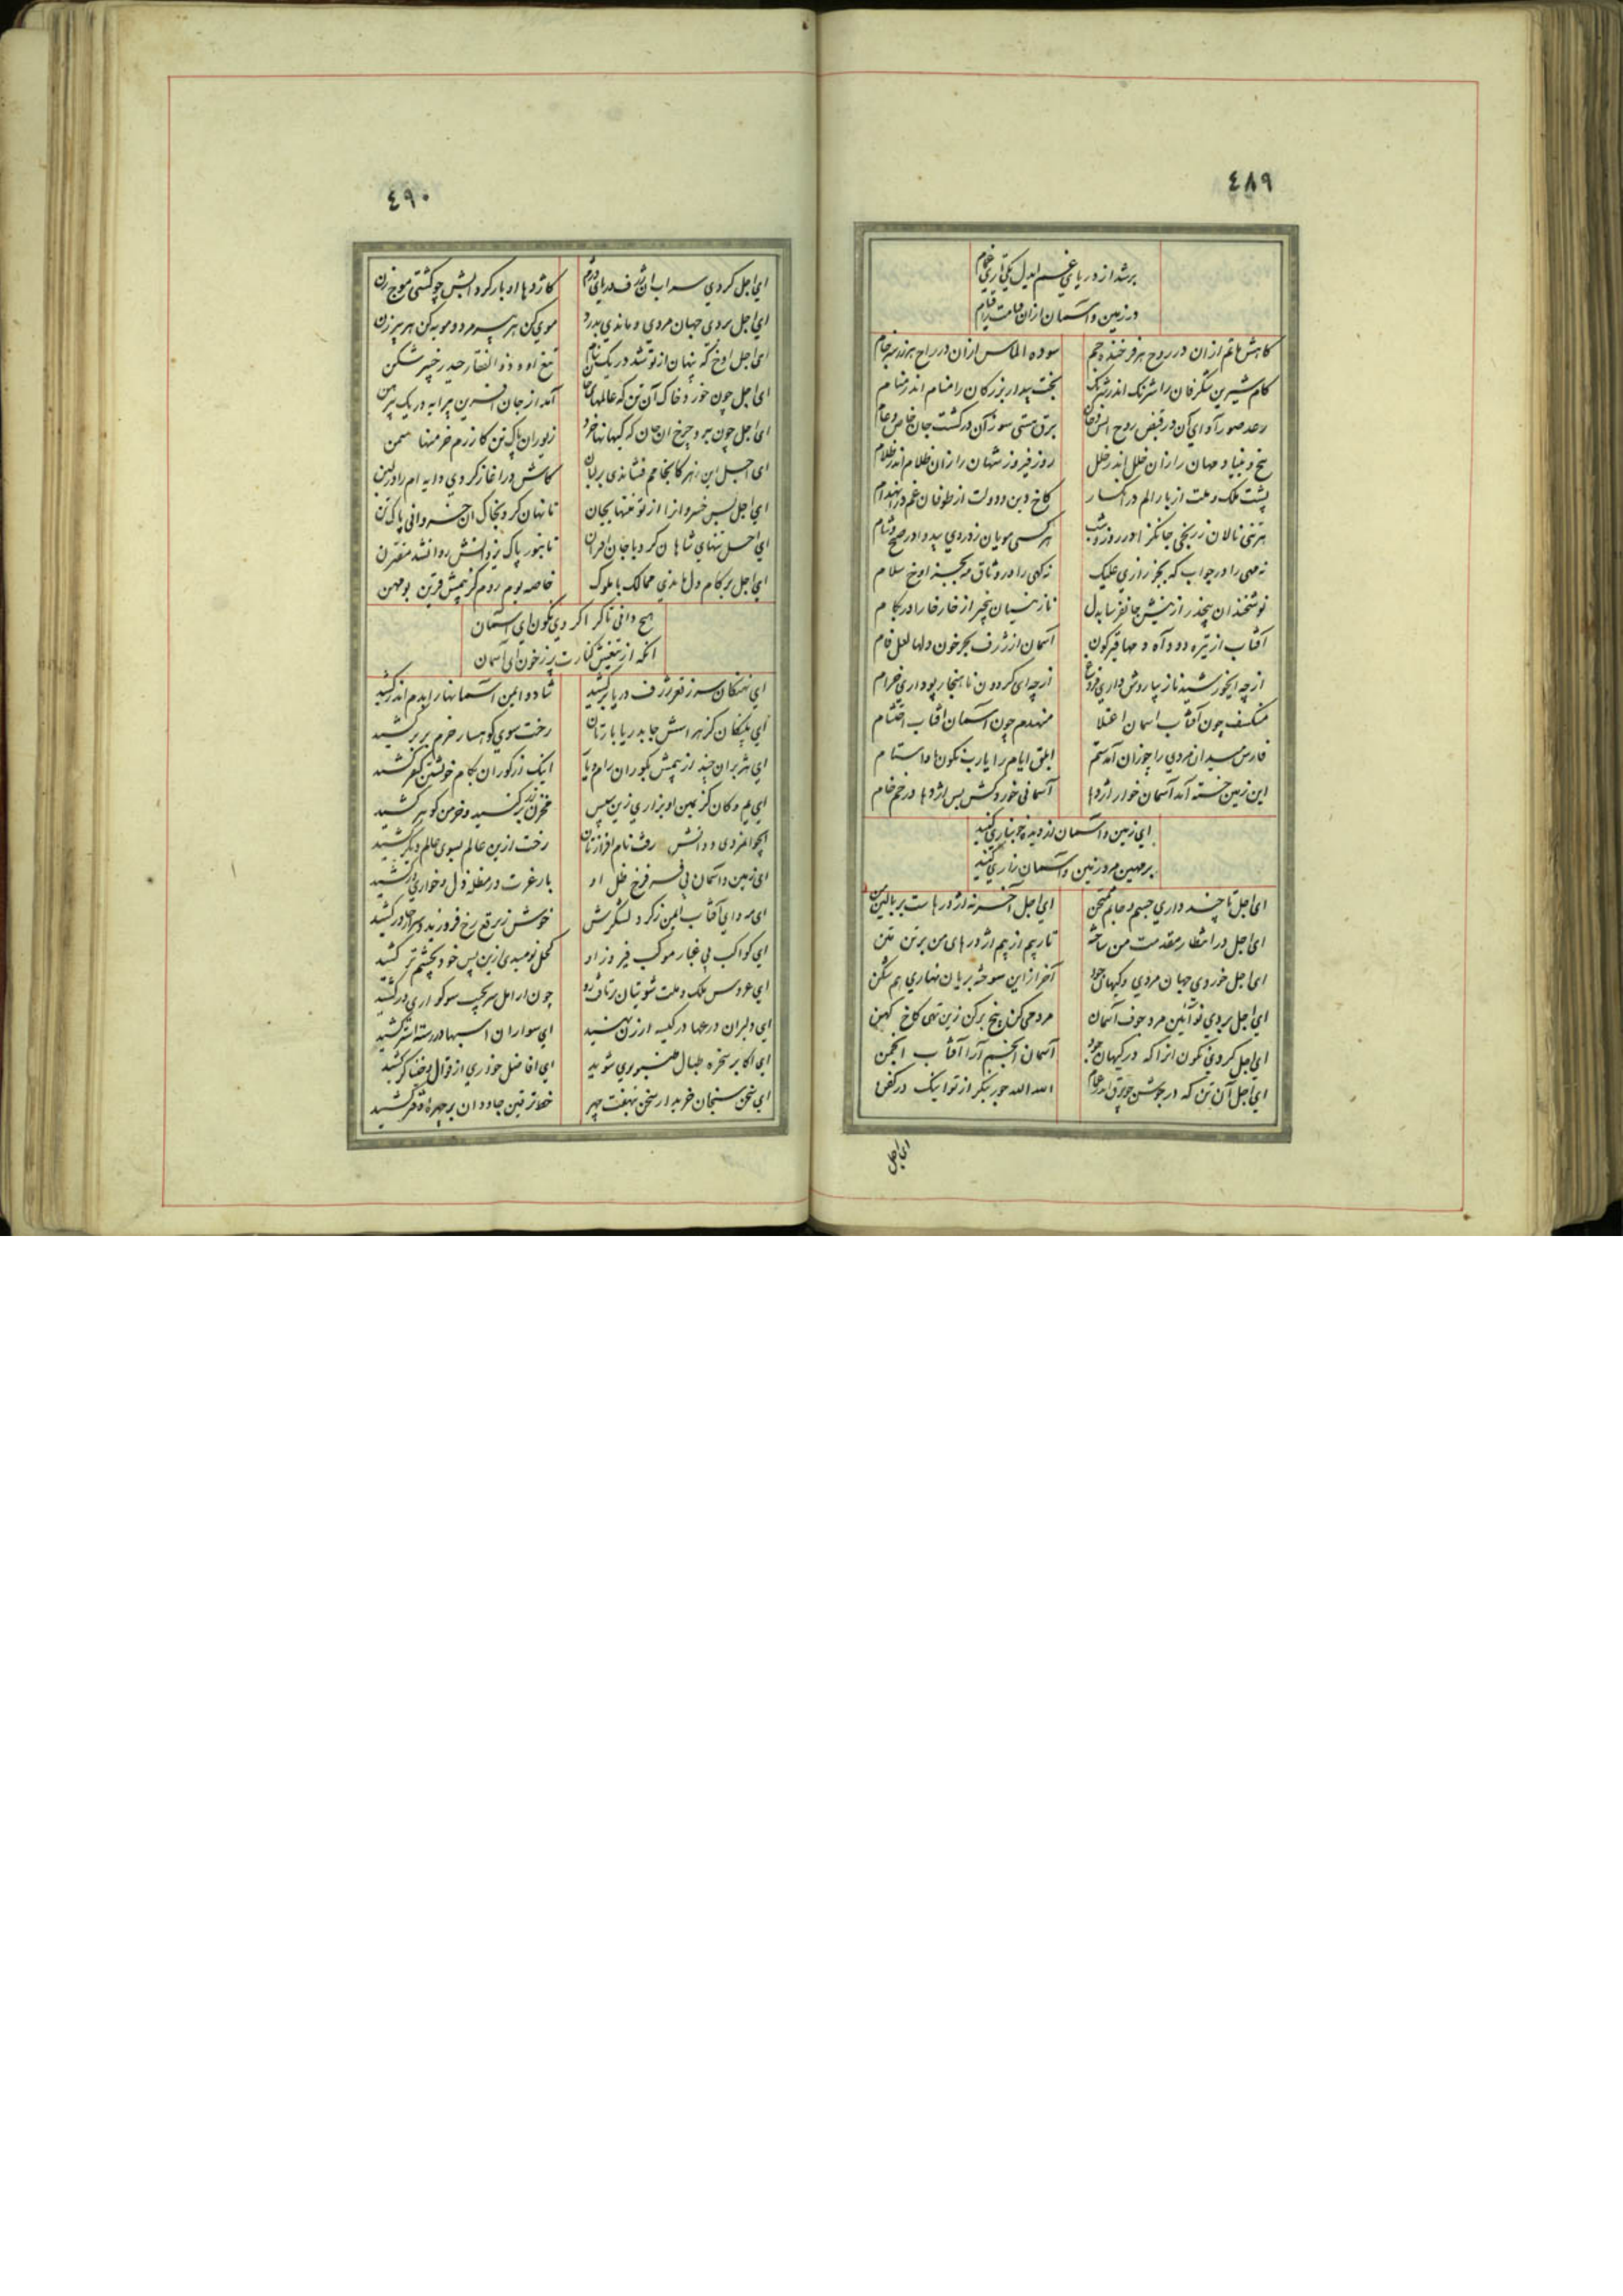 ٤٨٩
برشد از دریای غم ایدل یکی تاری غمام
در زمین و آسمان ازان قیامت را قیام
کاهش ماتم ازان در روح هر فرخنده جم سوده الماس ازان در راح هر زرینه جام
کام شیرین شگرفان را شرنگ اندر شرنگ بخت بیدار بزرکان را منام اندر منام
رعد صور آوای آن در قبض روح انس و جان برق هستی سوز آن در کشت جان خاص و عام
بیخ و بنیاد مهان را زان خلل اندر خلل روز فیروز شهان را زان ظلام اندر ظلام
پشت ملک و ملت از بار الم در انکسار کاخ دین و دولت از طوفان غم در انهدام
هر تنی نالان ز رنجی جانکزا در روز و شب هر کسی مویان ز دردی بیدوا در صبح و شام
نه مهی را در جواب که بجز زاری علیک نه کهی را در وثاق مه بجز اوخ سلام
نوشخندان بیخبر از نیش جانفرسا بدل نازنینان بیخبر از خار خارا در بکام
آفتاب از تیره دود آه دمها قیرگون آسمان از ژرف بحر خون دلها لعل فام
از چه ایخورشید نازیبا روش داری فروغ از چه ای گردون ناهنجار پو داری خرام
منکسف چون آفتاب آسمان اعتلا منهدم چون آسمان آفتاب احتشام
فارس میدان مردی را چو زان آمد ستم ابلق ایام را یارب نگون باد استام
این زمین خسته آمد آسمان خوار اژدها آسمانی خورد کش بس اژدها در خم خام
ای زمین و آسمان از دیده خونباری کنید
بر مهین مرد زمین و آسمان زاری کنید
ای اجل تا چند داری جسم و جانم ممتحن ای اجل آخر نه اژدرهاست بر بالین من
ای اجل در انتظار مقدمت من ساخته تار بیم از بیم اژدرهای من بر تن متن
ای اجل خوردی جهان مردی و کیهان جود آخر از این سوخته بریان نهاری هم شکن
ای اجل بردی نو آئین مرد جوف آسمان مردمی کن بیخ برکن زین تهی کاخ کهن
ای اجل کردی نگون انرا که در کیهان جود آسمان انجم آرا آفتاب انجمن
ای اجل آن تن که در جوشن چو برق اندر غمام الله الله چون بنگر از تو اینک در کفن
ای اجل
٤٩٠
ای اجل کردی سراب ان ژرف دریای دژم کاژدها اوبار کرد ابش چو کشتی موج زن
ای اجل بردی جهان مردی و ماندی بدرد موی کن هر پیر مرد و مویه کن هر پیر زن
ای اجل اوخ که پنهان از تو شد در یک نیام تیغ او و ذو الفقار حیدر خیبر شکن
ای اجل چون خورد خاک آن تن که عالمهای جان آمد از جان آفرین پیرایه در یک پیرهن
ای اجل چون برد چرخ ان جان که کیهانها خرد زیور ان پاک تن کا زرم خرمنها سمن
ای اجل این زهر کانجامم فشاندی بر لبان کاش در اغاز کردی دایه ام را در لبن
ای اجل بس خسروانرا از تو تنها بیجان تا نهان کرد بخاک ان خسروانی پاک تن
ای اجل تنهای شاهان کرد با جان اقران تا بنور پاک یزدانش روان شد مقترن
ای اجل بر کام دل ماندی ممالک با ملوک خاصه بوم روم کز بیمش قرین بو مهن
هیچ دانی تا کرا کردی نگون ای آسمان
انکه از تیغش کنارت پر ز خون ای آسمان
ای نهنکان سر ز قعر ژرف دریا برکشید شاد و ایمن آسمانها را بدم اندر کشید
ای پلنکان کز هراسش جا بدریا بارتان رخت سوی کوهسار خرم بر بر کشید
ای هژبران چند از بیمش بکوران رام و یار اینک از کوران بکام خویشتن کیفر کشید
ای یم و کان کز یمین او بزاری زین سپس مخزن زر بر کنید و خرمن کوهر کشید
ایجوانمردی و دانش رفت نام افرازتان رخت ازین عالم بسوی عالم دیگر کشید
ای زمین و آسمان بی فر فرخ ظل او بار غربت در مظله ذل و خواری در کشید
ای مه و ای آفتاب ایمن ز کرد لشگرش خوش ز برقع رخ فروزید و سراز چادر کشید
ای کواکب بی غبار موکب فیروز او کحل نومیدی ازین پس خود بچشم تر کشید
ای عروس ملک و ملت شویتان رتاف رو چون ارامل سر بجیب سوکواری در کشید
ای دلیران درعها در کلبه ارزن نهید ای سواران اسبها در رسته استر کشید
ای اکابر سخره طبال طنبوری شوید ای افاضل خواری از قوال و خنیاگر کشید
ای سخن سنجان خریدار سخن بنهفت چهر خط ترقین جاودان بر چهره دفتر کشید